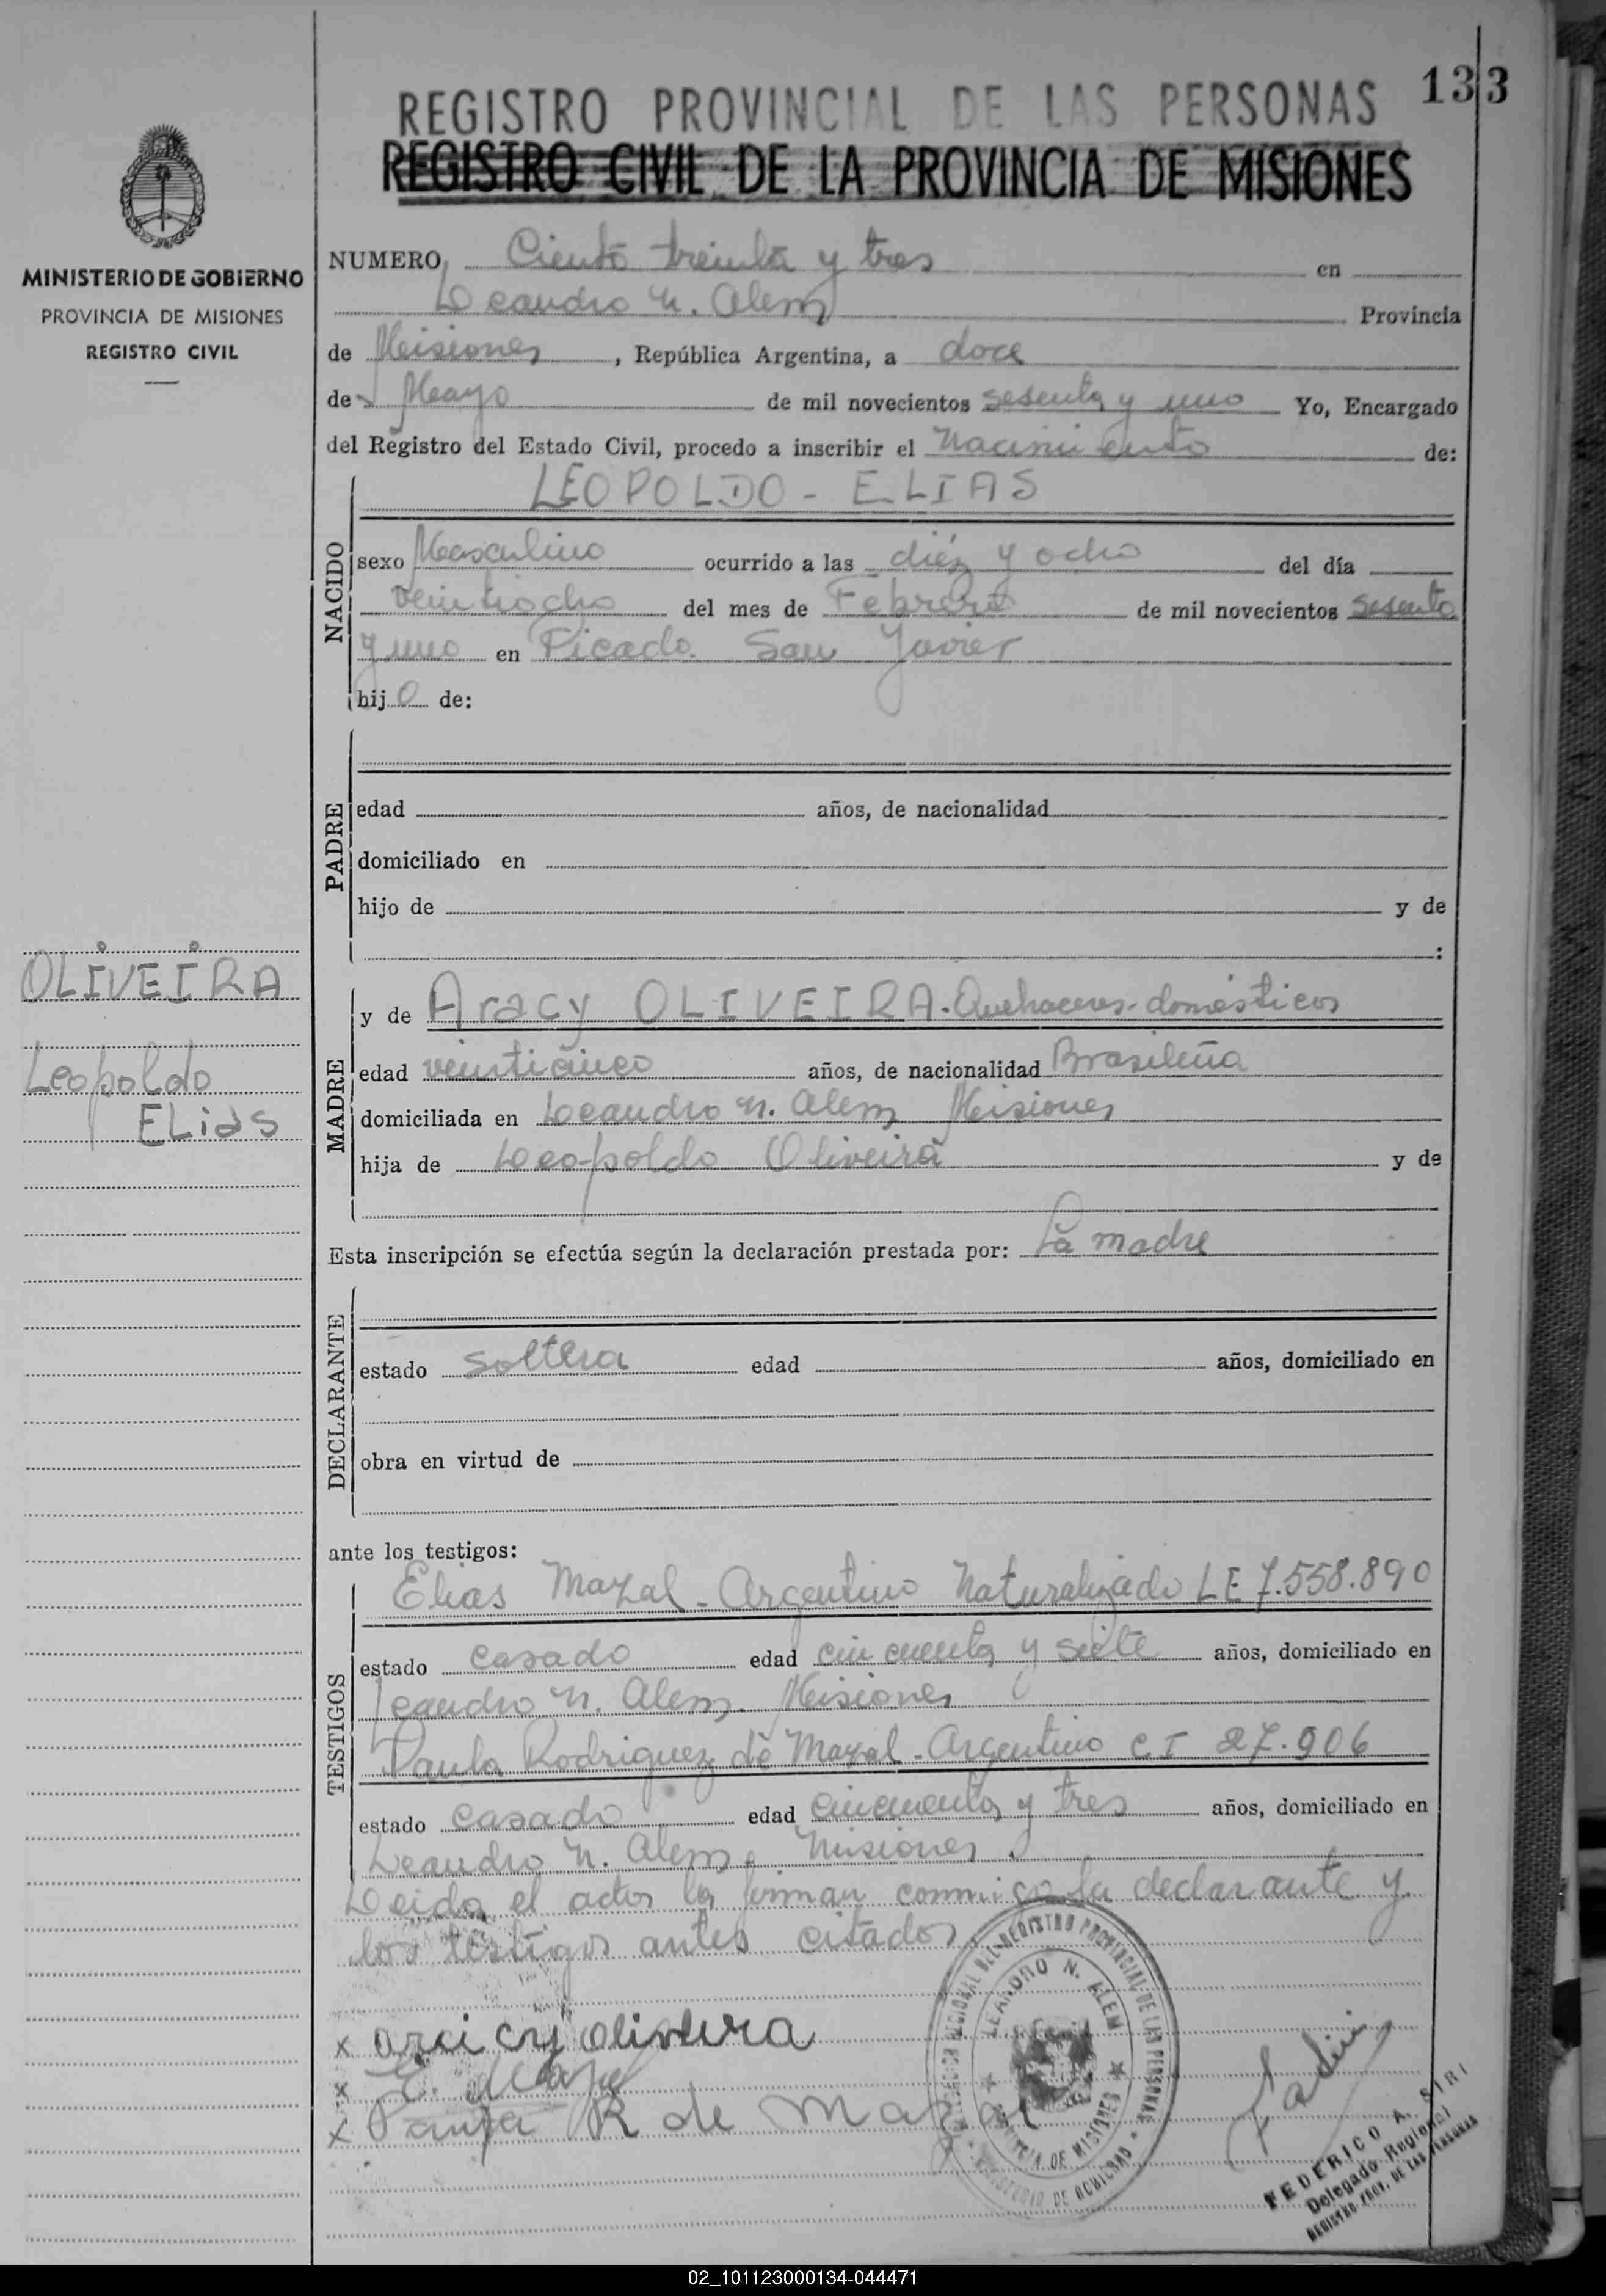 133
REGISTRO PROVINCIAL DE LAS PERSONAS
REGISTRO CIVIL DE LA PROVINCIA DE MISIONES
MINISTERIO DE GOBIERNO
PROVINCIA DE MISIONES
REGISTRO CIVIL
NUMERO, Ciento treinta y tres en
Leandro N. Alem Provincia
de Misiones, República Argentina, a doce
de Mayo de mil novecientos sesenta y uno Yo, Encargado
del Registro del Estado Civil, procedo a inscribir el Nacimiento de:
LEOPOLDO - ELIAS
NACIDO
sexo Masculino ocurrido a las diéz y ocho del día
veintiocho del mes de Febrero de mil novecientos sesenta
y uno en Picada San Javier
hijo de:
PADRE
edad años, de nacionalidad
domiciliado en
hijo de y de
:
OLIVEIRA
Leopoldo
ELias
MADRE
y de Aracy OLIVEIRA. Quehaceres-domésticos
edad veinticinco años, de nacionalidad Brasileña
domiciliada en Leandro N. Alem Misiones
hija de Leopoldo Oliveira y de
Esta inscripción se efectúa según la declaración prestada por: La madre
DECLARANTE
estado soltera edad años, domiciliado en
obra en virtud de
ante los testigos:
TESTIGOS
Elias Mazal - Argentino Naturalizado LE 7.558.890
estado casado edad cincuenta y siete años, domiciliado en
Leandro N. Alem. Misiones
Paula Rodriguez de Mazal - Argentino C.I 27.906
estado casado edad cincuenta y tres años, domiciliado en
Leandro N. Alem, Misiones.
Leida el acta la firman conmigo la declarante y
los testigos antes citados
x araicy oliveira
x E. Mazal
x Paula R de Mazal
DELEGACION REGIONAL DEL REGISTRO PROVINCIAL DE LAS PERSONAS
LEANDRO N. ALEM
PROVINCIA DE MISIONES
MINISTERIO DE GOBIERNO
FEDERICO A. SIRI
Delegado Regional
REGISTRO PROV. DE LAS PERSONAS
02_101123000134-044471